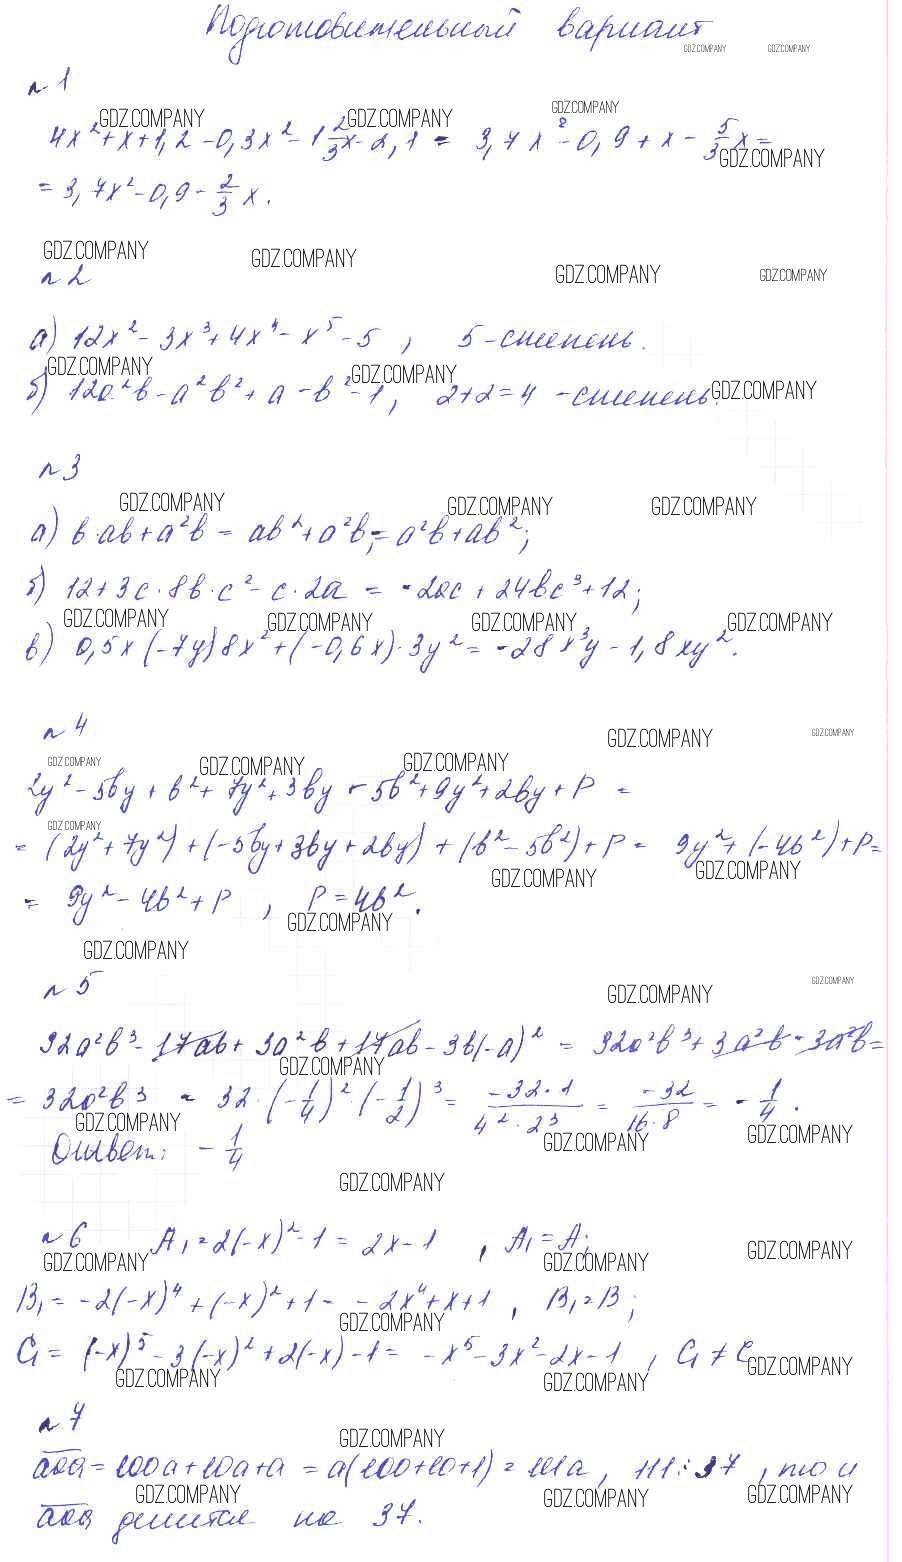 Подготовительный вариант
GDZ.COMPANY GDZ.COMPANY
№ 1
GDZ.COMPANY GDZ.COMPANY GDZ.COMPANY
4x² + x + 1,2 - 0,3x² - 1 2/3 x - 2,1 = 3,7x² - 0,9 + x - 5/3 x =
GDZ.COMPANY
= 3,7x² - 0,9 - 2/3 x.
GDZ.COMPANY GDZ.COMPANY GDZ.COMPANY GDZ.COMPANY
№ 2
а) 12x² - 3x³ + 4x⁴ - x⁵ - 5 , 5 - степень.
GDZ.COMPANY GDZ.COMPANY GDZ.COMPANY
б) 12a²b - a²b² + a - b² - 1 , 2+2=4 - степень.
№ 3
GDZ.COMPANY GDZ.COMPANY GDZ.COMPANY
а) b·ab + a²b = ab² + a²b = a²b + ab²;
б) 12 + 3c·8b·c² - c·2a = -2ac + 24bc³ + 12;
GDZ.COMPANY GDZ.COMPANY GDZ.COMPANY GDZ.COMPANY
в) 0,5x(-7y)8x² + (-0,6x)·3y² = -28x³y - 1,8xy².
№ 4
GDZ.COMPANY GDZ.COMPANY
GDZ.COMPANY GDZ.COMPANY GDZ.COMPANY
2y² - 5by + b² + 7y² + 3by - 5b² + 9y² + 2by + P =
GDZ.COMPANY
= (2y² + 7y²) + (-5by + 3by + 2by) + (b² - 5b²) + P = 9y² + (-4b²) + P =
GDZ.COMPANY GDZ.COMPANY
= 9y² - 4b² + P , P = 4b².
GDZ.COMPANY
GDZ.COMPANY
№ 5
GDZ.COMPANY GDZ.COMPANY
32a²b³ - 17ab + 3a²b + 17ab - 3b(-a)² = 32a²b³ + 3a²b - 3a²b =
GDZ.COMPANY
= 32a²b³ = 32·(-1/4)²·(-1/2)³ = -32·1/4²·2³ = -32/16·8 = -1/4.
GDZ.COMPANY GDZ.COMPANY GDZ.COMPANY
Ответ: -1/4
GDZ.COMPANY
№ 6 A₁ = 2(-x)² - 1 = 2x - 1 , A₁ = A;
GDZ.COMPANY GDZ.COMPANY GDZ.COMPANY
B₁ = -2(-x)⁴ + (-x)² + 1 = -2x⁴ + x + 1 , B₁ = B;
GDZ.COMPANY
C₁ = (-x)⁵ - 3(-x)² + 2(-x) - 1 = -x⁵ - 3x² - 2x - 1 , C₁ ≠ C
GDZ.COMPANY GDZ.COMPANY GDZ.COMPANY
№ 7
GDZ.COMPANY
aaa = 100a + 10a + a = a(100+10+1) = 111a , 111 ⋮ 37 , то и
GDZ.COMPANY GDZ.COMPANY GDZ.COMPANY
aaa делится на 37.